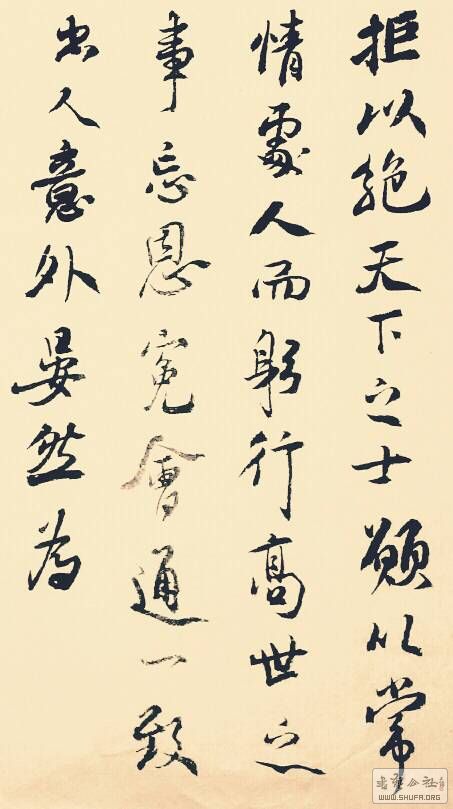 拒以絕天下之士顧以常
情處人而躬行高世之
事忘恩冤會通一致
出人意外晏然為
書藝公社
WWW.SHUFA.ORG